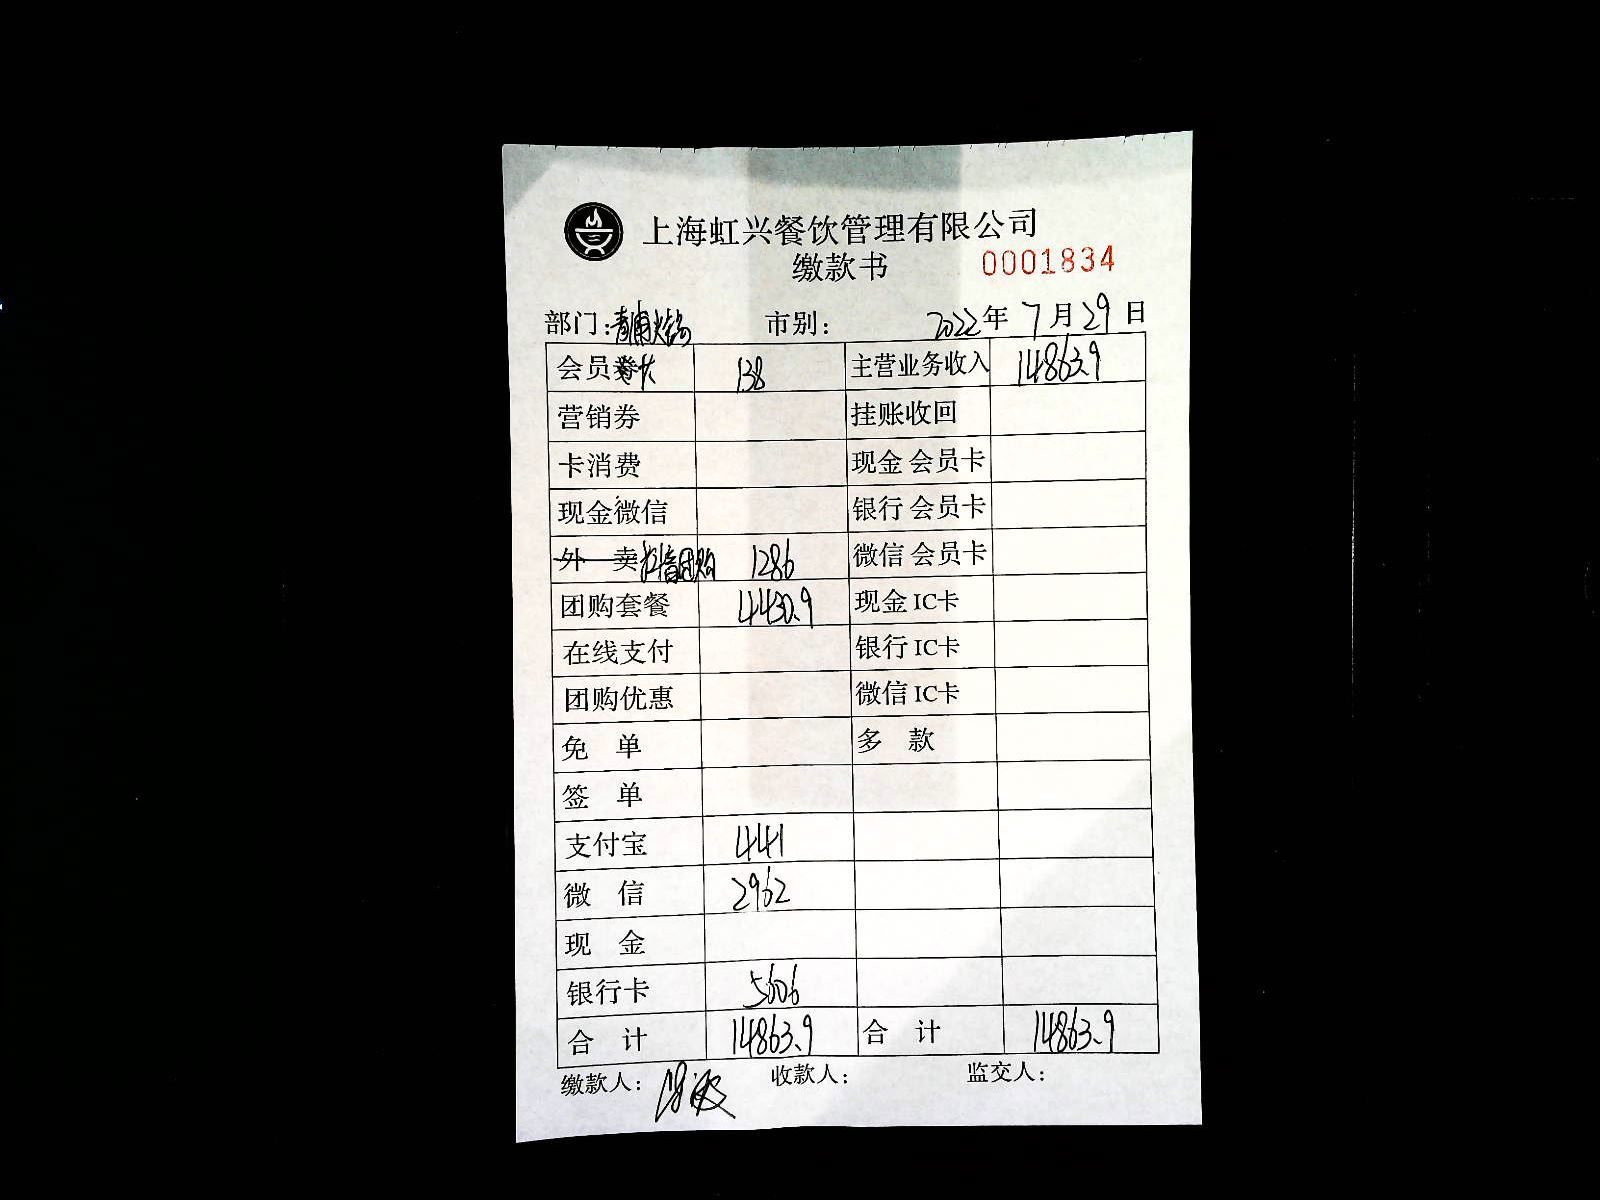 上海虹兴餐饮管理有限公司
缴款书 0001834
部门: 青浦火锅 市别: 2022年 7月29日
会员 138 主营业务收入 14863.9
营销券 挂账收回
卡消费 现金 会员卡
现金微信 银行 会员卡
外 卖 抖音团购 1286 微信 会员卡
团购套餐 4430.9 现金 IC卡
在线支付 银行 IC卡
团购优惠 微信 IC卡
免 单 多 款
签 单
支付宝 441
微 信 2962
现 金
银行卡 5606
合 计 14863.9 合 计 14863.9
缴款人: 收款人: 监交人: